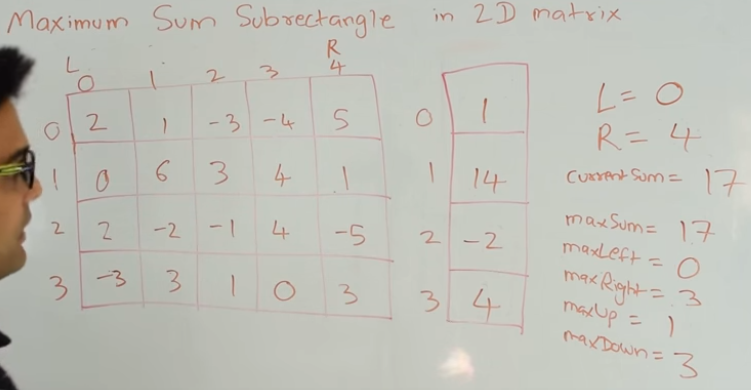 Maximum Sum Subrectangle in 2D matrix
L R
0 1 2 3 4
0 2 1 -3 -4 5
1 0 6 3 4 1
2 2 -2 -1 4 -5
3 -3 3 1 0 3
0 1
1 14
2 -2
3 4
L = 0
R = 4
currentSum = 17
maxSum = 17
maxLeft = 0
maxRight = 3
maxUp = 1
maxDown = 3